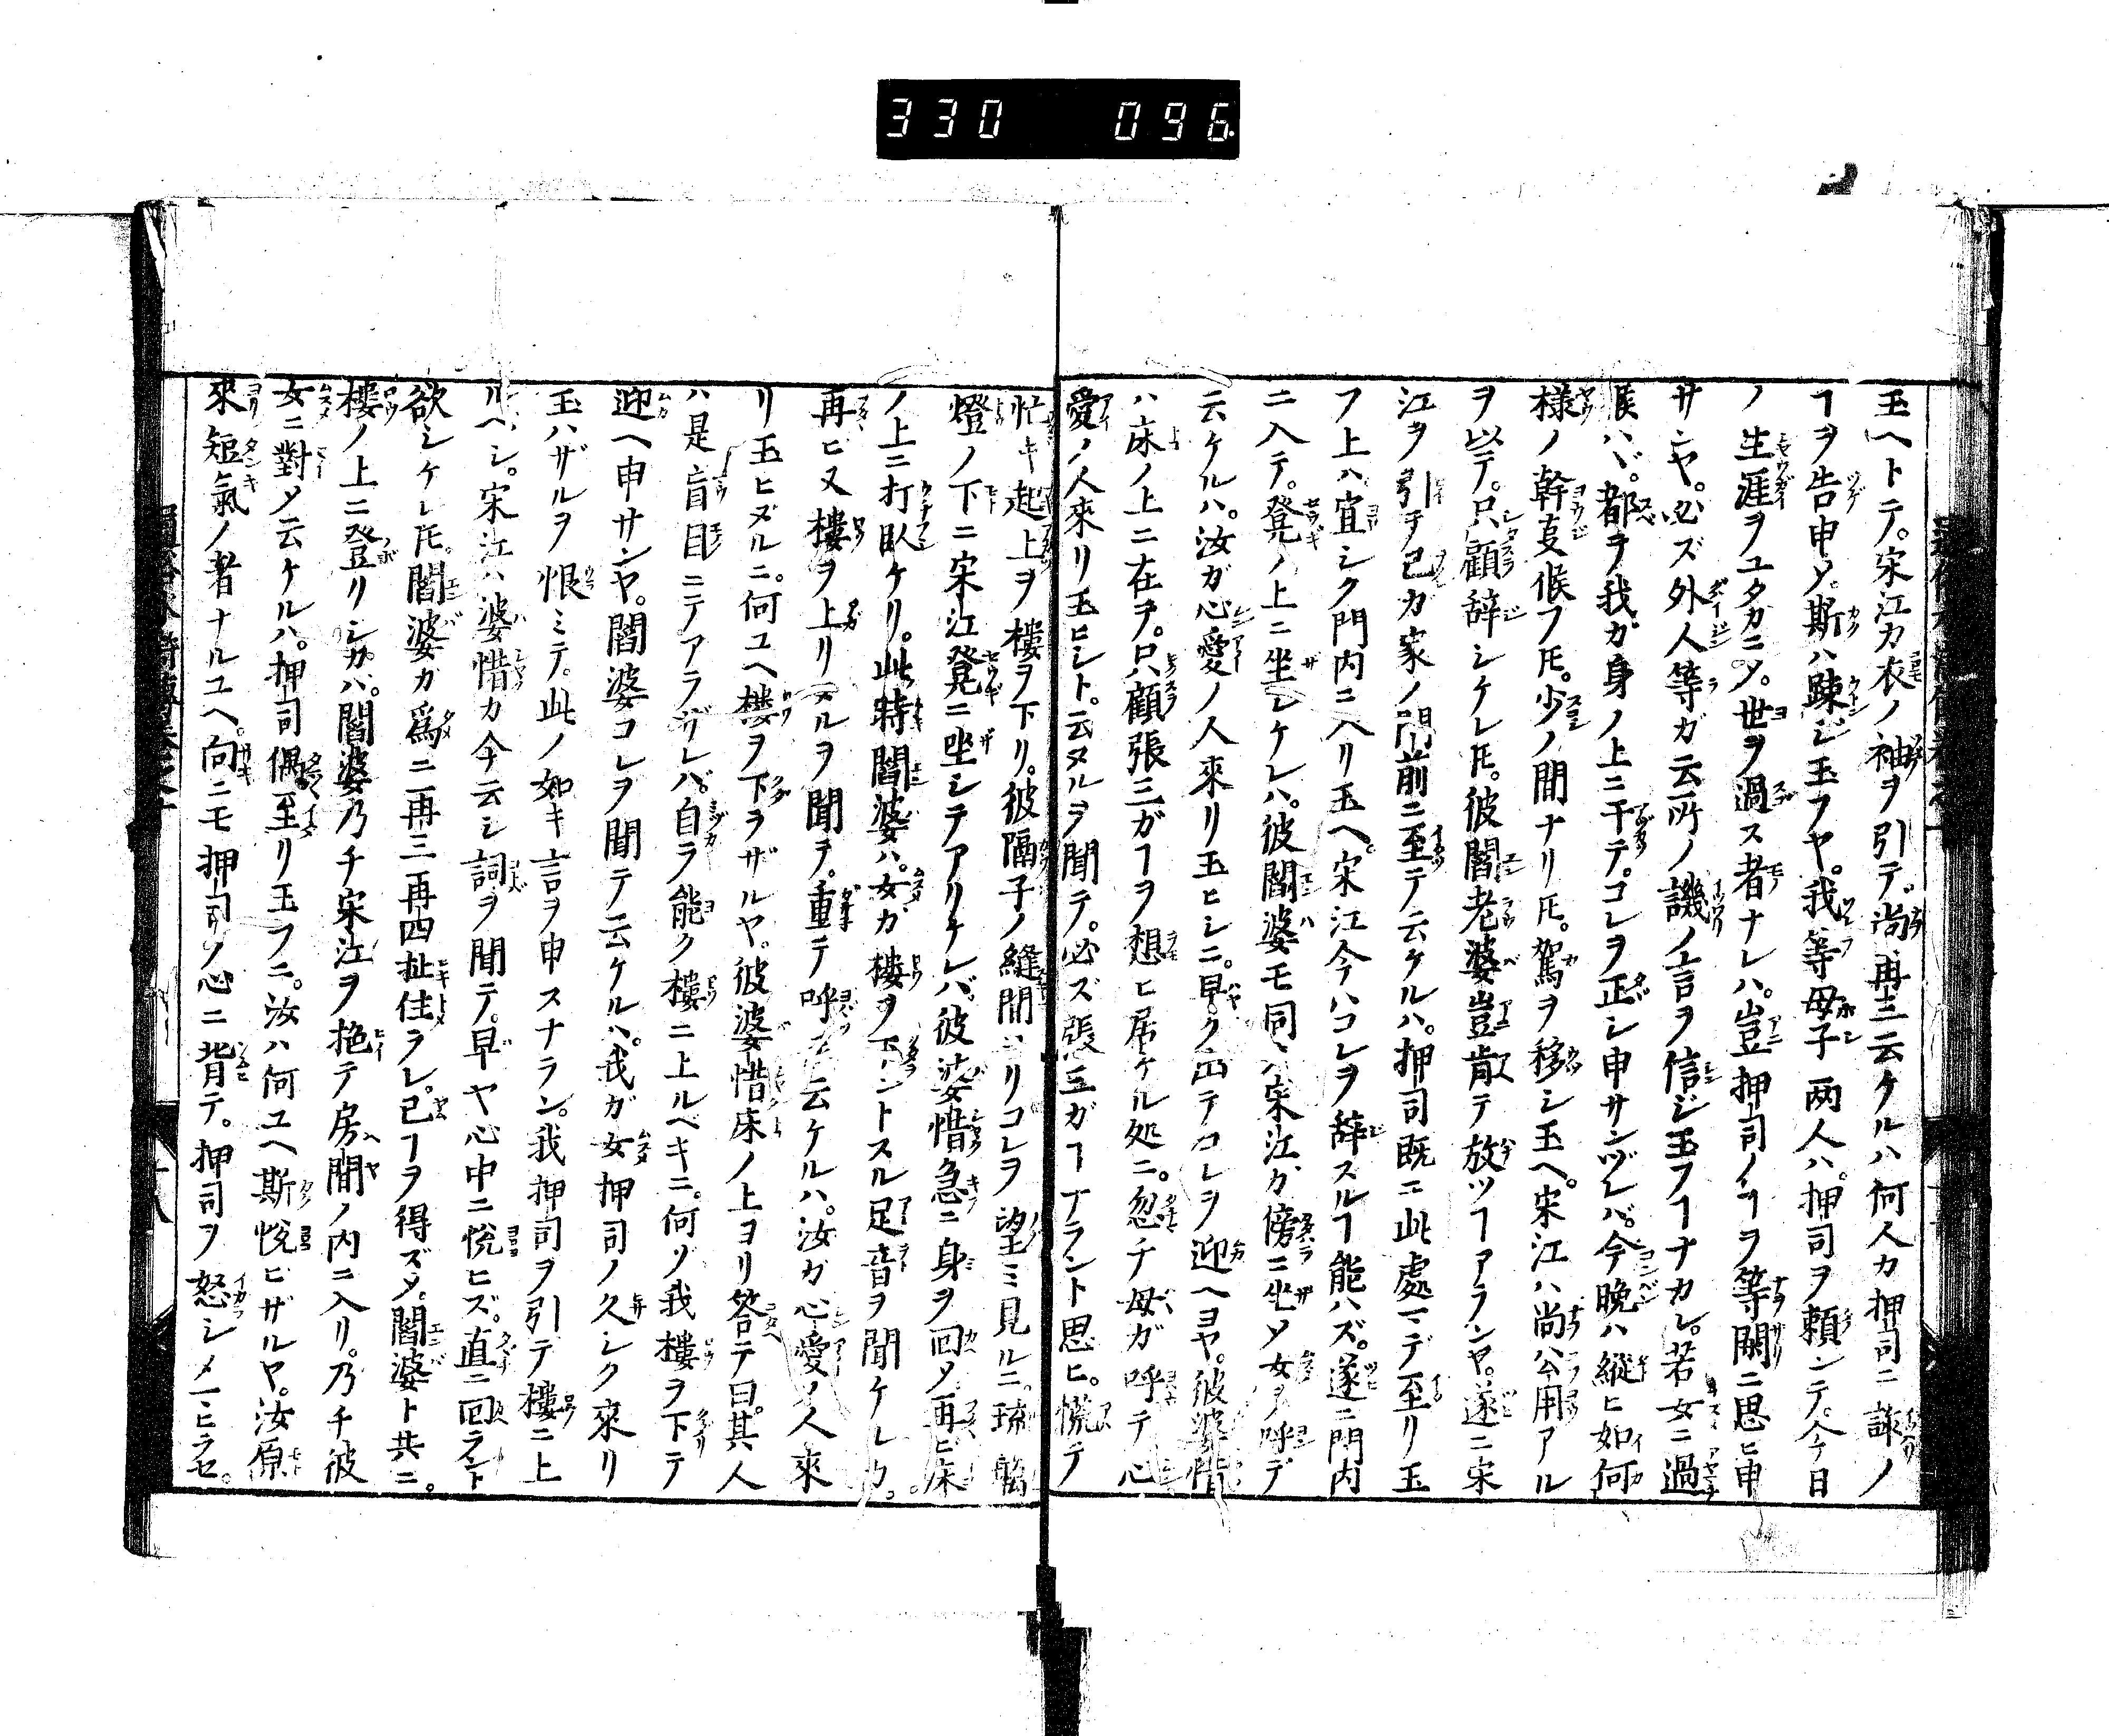 330 096
玉ヘトテ。宋江カ衣ノ袖ヲ引テ。尚再三云ケルハ何人カ押司ニ詠ノ
ヿヲ告申メ。斯ハ踈ジ玉フヤ。我等母子两人ハ。押司ヲ頼ンテ。今日
ノ生涯ヲユタカニメ。世ヲ過ス者ナレハ。豈押司ノヿヲ等閑ニ思ヒ申
サンヤ。必ズ外人等ガ云所ノ譏ノ言ヲ信ジ玉フヿナカレ。若女ニ過
候ハヾ。都テ我ガ身ノ上ニ干テ。コレヲ正シ申サンヅレバ。今晩ハ縱ヒ如何
樣ノ幹㕝候フ𪜈。少ノ間ナリ𪜈。駕ヲ移シ玉ヘ。宋江ハ尚公用アル
ヲ以テ。只顧辞シケレ𪜈。彼閻老婆豈肯テ放ツヿアランヤ。遂ニ宋
江ヲ引テ己カ家ノ門前ニ至テ云ケルハ。押司既ニ此處マデ至リ玉
フ上ハ宜シク門内ニ入リ玉ヘ。宋江今ハコレヲ辞スルヿ能ハズ。遂ニ門内
ニ入テ。凳ノ上ニ坐シケレハ。彼閻婆モ同ク宋江カ傍ニ坐メ女ヲ呼デ
云ケルハ。汝ガ心愛ノ人來リ玉ヒシニ。早ク出テコレヲ迎ヘヨヤ。彼婆惜
ハ床ノ上ニ在ヲ。只顧張三ガヿヲ想ヒ居ケル処ニ。忽チ母ガ呼テ心
愛ノ人來リ玉ヒシト。云タルヲ聞テ。必ズ張三ガヿナラント思ヒ。慌テ
忙キ起上ヲ樓ヲ下リ。彼隔子ノ縫間ヨリコレヲ望ミ見ルニ。琉璃
燈ノ下ニ宋江凳ニ坐シテアリケレバ。彼婆惜急ニ身ヲ回メ再ヒ床
ノ上ニ打臥ケリ。此時閻婆ハ。女ガ樓ヲ下ントスル足音ヲ聞ケレカ。
再ヒ又樓ヲ上リヌルヲ聞テ。重テ呼テ云ケルハ。汝ガ心愛ノ人來
リ玉ヒヌルニ。何ユヘ樓ヲ下ラザルヤ。彼婆惜床ノ上ヨリ答テ曰。其人
ハ是盲目ニテアラザレバ。自ラ能ク樓ニ上ルベキニ。何ソ我樓ヲ下テ
迎ヘ申サンヤ。閻婆コレヲ聞テ云ケルハ。我ガ女押司ノ久シク來リ
玉ハザルヲ恨ミテ。此ノ如キ言ヲ申スナラン。我押司ヲ引テ樓ニ上
ルベシ。宋江ハ婆惜カ今云シ詞ヲ聞テ。早ヤ心中ニ悦ヒズ。直ニ回ラント
欲シケレ𪜈。閻婆カ爲ニ再三再四扯住ラレ。已ヿヲ得ズメ。閻婆ト共ニ。
樓ノ上ニ登リシカハ。閻婆乃チ宋江ヲ拖テ房間ノ内ニ入リ。乃チ彼
女ニ對メ云ケルハ。押司偶至リ玉フニ。汝ハ何ユヘ斯悦ビザルヤ。汝原
來短氣ノ者ナルユヘ。向ニモ押司ノ心ニ背テ。押司ヲ怒シメマヒラセ。
十八